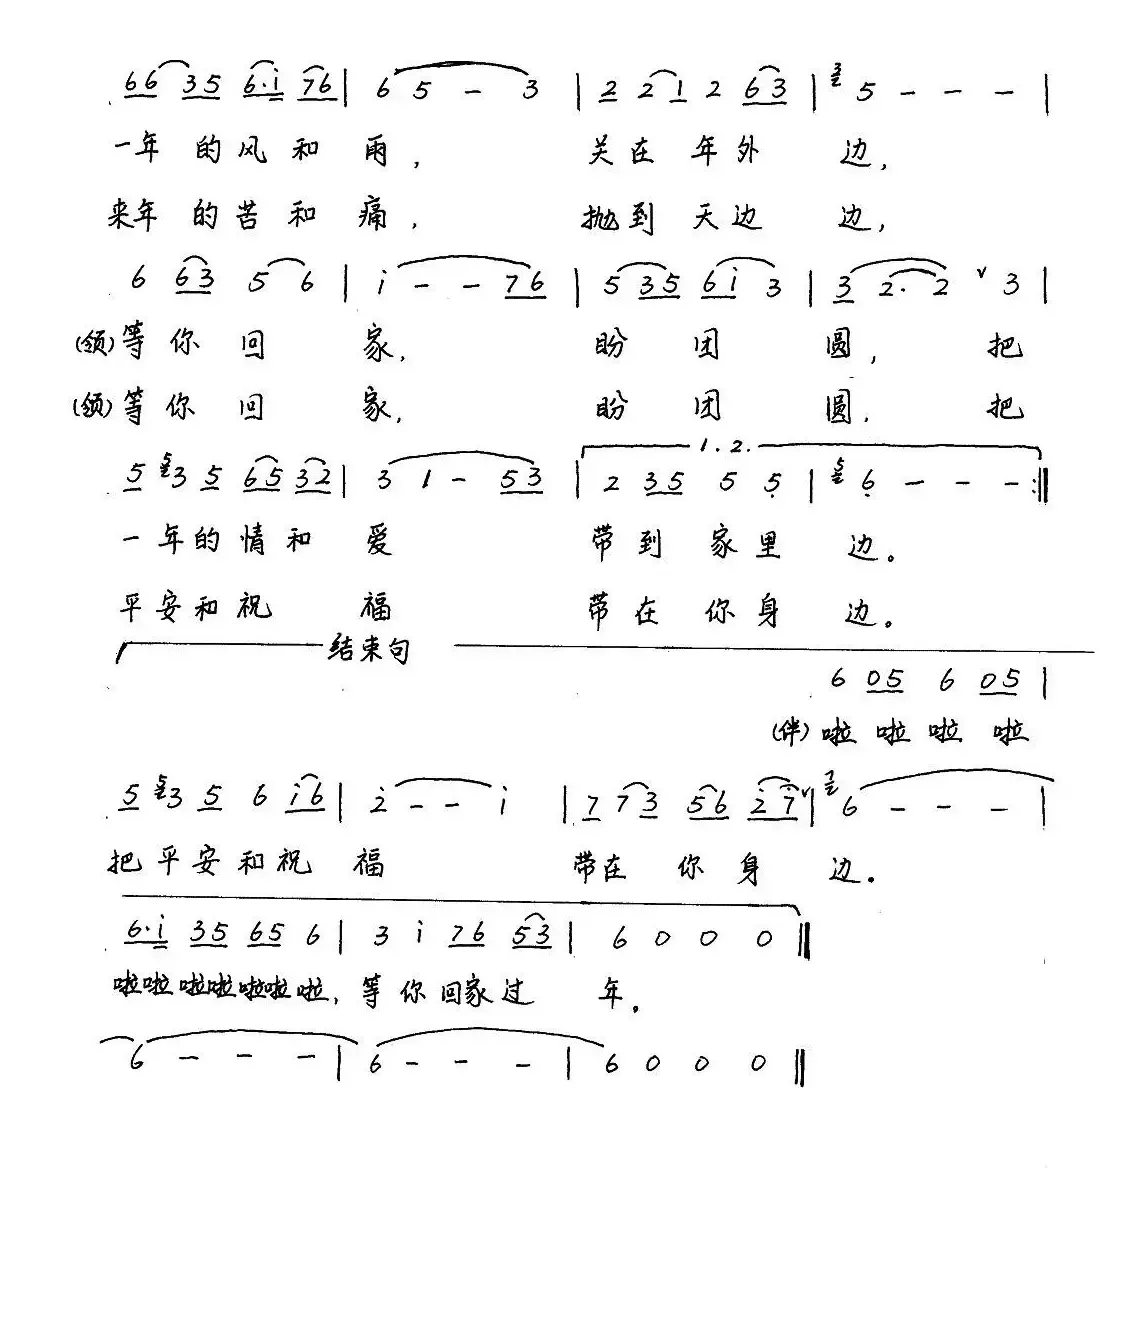 66 35 6·i 76 | 6 5 – 3 | 2 2 1 2 63 | 3 5 – – – |
一年 的风和 雨， 关在 年外 边，
来年 的苦和 痛， 抛到 天边 边，
6 63 5 6 | i – – 76 | 5 35 6i 3 | 3 2· 2 ᵛ 3 |
(领)等你 回 家， 盼 团 圆， 把
(领)等你 回 家， 盼 团 圆， 把
1.2.
5 5 3 5 65 32 | 3 1 – 53 | 2 35 5 5 | 5 6 – – – :||
一 年的 情和 爱 带到 家里 边。
平安和祝 福 带在 你身 边。
结束句
6 05 6 05 |
(伴)啦 啦 啦 啦
5 5 3 5 6 i6 | 2 – – i | 7 7 3 56 27 ᵛ | 7 6 – – – |
把平安和祝 福 带在 你身 边。
6·i 35 65 6 | 3 i 76 53 | 6 0 0 0 ||
啦啦 啦啦啦啦啦，等你回家过 年。
6 – – – | 6 – – – | 6 0 0 0 ||